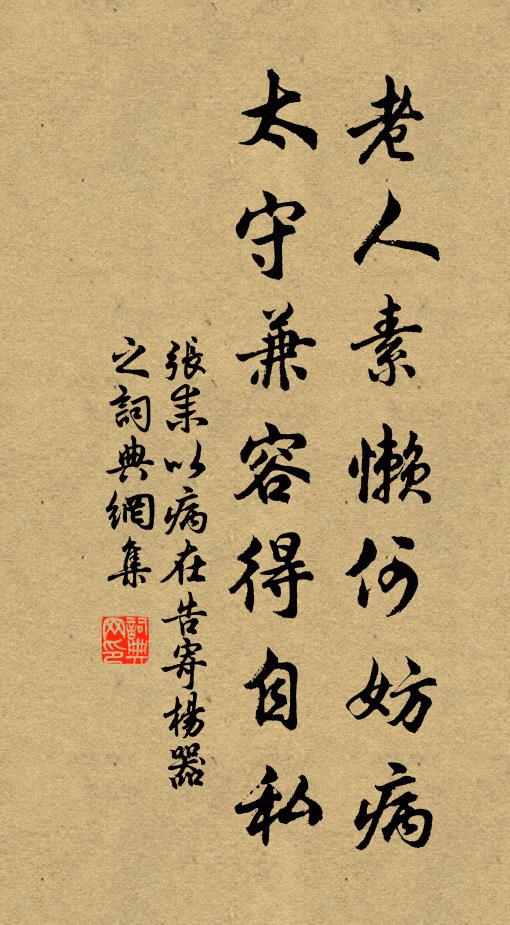 老人素懶何妨病
太守兼容得自私
張耒以病在告寄楊器
之詞典網集
詞典
网印